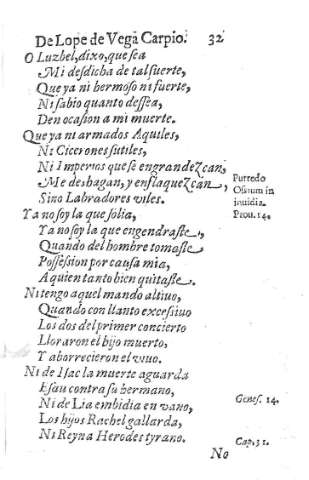 De Lope de Vega Carpio. 32
O Luzbel, dixo, que sea
Mi desdicha de tal suerte,
Que ya ni hermoso ni fuerte,
Ni sabio quanto dessea,
Den ocasion a mi muerte.
Que ya ni armados Aquiles,
Ni Cicerones sutiles,
Ni Imperios que se engrandezcan,
Me deshagan, y enflaquezcan,
Sino Labradores viles.
Putredo
Ossium in
inuidia.
Prou. 14.
Ya no soy la que solia,
Ya no soy la que engendraste,
Quando del hombre tomaste
Possession por causa mia,
A quien tanto bien quitaste.
Ni tengo aquel mando altiuo,
Quando con llanto excessiuo
Los dos del primer concierto
Lloraron el hijo muerto,
Y aborrecieron el viuo.
Ni de Isac la muerte aguarda
Esau contra su hermano,
Genes. 14.
Ni de Lia embidia en vano,
Los hijos Rachel gallarda,
Ni Reyna Herodes tyrano.
Cap. 31.
No